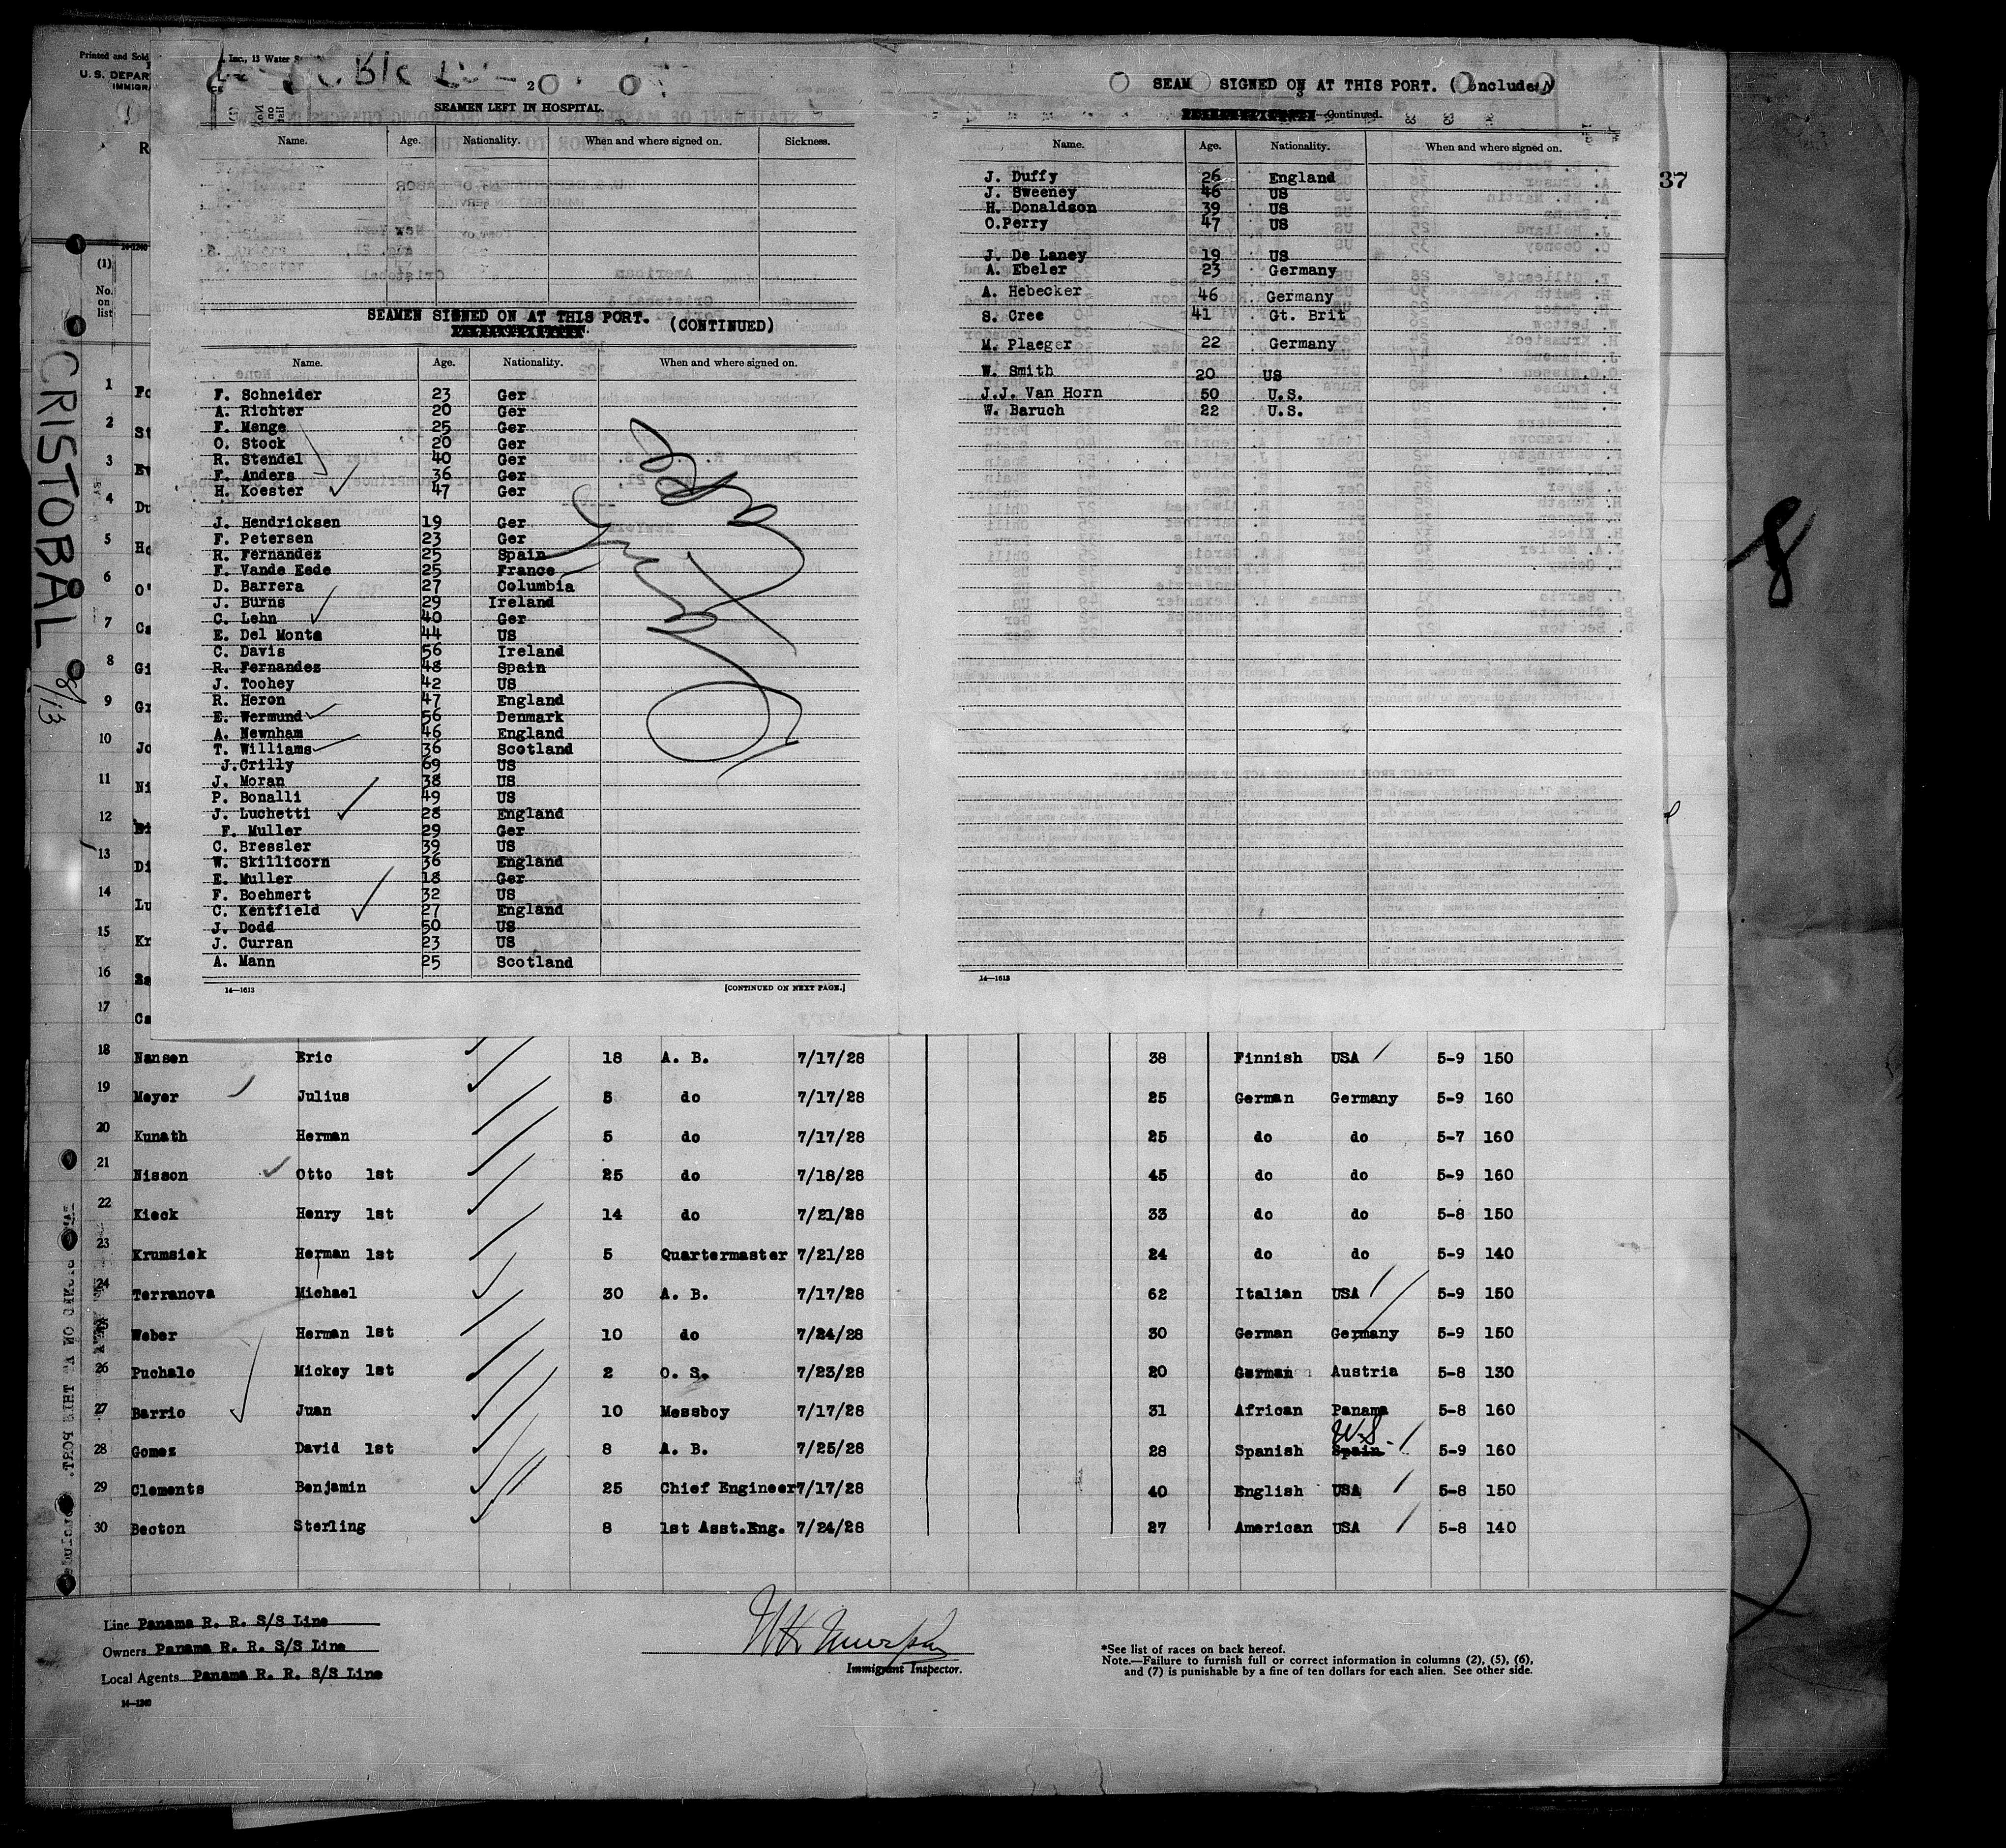 Printed and Sold
U. S. DEPAR
IMMIGRA
R
14-1240
(1)
No.
on
list
CRISTOBAL 8/13
Inc., 13 Water S
SEAMEN LEFT IN HOSPITAL.
Name. Age. Nationality. When and where signed on. Sickness.
SEAMEN SIGNED ON AT THIS PORT. (CONTINUED)
Name. Age. Nationality. When and where signed on.
F. Schneider 23 Ger
A. Richter 20 Ger
F. Menge 25 Ger
O. Stock 20 Ger
R. Stendel 40 Ger
F. Anders 36 Ger
H. Koester 47 Ger
J. Hendricksen 19 Ger
F. Petersen 23 Ger
R. Fernandez 25 Spain
F. Vande Eede 25 France
D. Barrera 27 Columbia
J. Burns 29 Ireland
C. Lehn 40 Ger
E. Del Monte 44 US
C. Davis 56 Ireland
R. Fernandez 48 Spain
J. Toohey 42 US
R. Heron 47 England
E. Wermund 56 Denmark
A. Newnham 46 England
T. Williams 36 Scotland
J.Crilly 69 US
J. Moran 38 US
P. Bonalli 49 US
J. Luchetti 28 England
F. Muller 29 Ger
C. Bressler 39 US
W. Skillicorn 36 England
E. Muller 18 Ger
F. Boehmert 32 US
C. Kentfield 27 England
J. Dodd 50 US
J. Curran 23 US
A. Mann 25 Scotland
14—1613 [CONTINUED ON NEXT PAGE.]
SEAM SIGNED ON AT THIS PORT. ( oncluded)
—Continued.
Name. Age. Nationality. When and where signed on.
J. Duffy 26 England
J. Sweeney 46 US
H. Donaldson 39 US
O.Perry 47 US
J. De Laney 19 US
A. Ebeler 23 Germany
A. Hebecker 46 Germany
S. Cree 41 Gt. Brit
M. Plaeger 22 Germany
W. Smith 20 US
J.J. Van Horn 50 U.S.
W. Baruch 22 U.S.
14—1613
37
8
1 Fo
2 St
3 Ev
4 Du
5 Ho
6 O'
7 Ca
8 Gi
9 Gr
10 Jo
11 Ni
12
13 Di
14 Lu
15 Kr
16
17 Ca
18 Nansen Eric 18 A. B. 7/17/28 38 Finnish USA 5-9 150
19 Meyer Julius 5 do 7/17/28 25 German Germany 5-9 160
20 Kunath Herman 5 do 7/17/28 25 do do 5-7 160
21 Nisson Otto 1st 25 do 7/18/28 45 do do 5-9 160
22 Kieck Henry 1st 14 do 7/21/28 33 do do 5-8 150
23 Krumsiek Herman 1st 5 Quartermaster 7/21/28 24 do do 5-9 140
24 Terranova Michael 30 A. B. 7/17/28 62 Italian USA 5-9 150
25 Weber Herman 1st 10 do 7/24/28 30 German Germany 5-9 150
26 Puchalo Mickey 1st 2 O. S. 7/23/28 20 German Austria 5-8 130
27 Barrio Juan 10 Messboy 7/17/28 31 African Panama 5-8 160
28 Gomez David 1st 8 A. B. 7/25/28 28 Spanish Spain U.S. 5-9 160
29 Clements Benjamin 25 Chief Engineer 7/17/28 40 English USA 5-8 150
30 Becton Sterling 8 1st Asst.Eng. 7/24/28 27 American USA 5-8 140
Line Panama R. R. S/S Line
Owners Panama R. R. S/S Line
Local Agents Panama R. R. S/S Line
14—1240
Immigrant Inspector.
*See list of races on back hereof.
Note.—Failure to furnish full or correct information in columns (2), (5), (6),
and (7) is punishable by a fine of ten dollars for each alien. See other side.